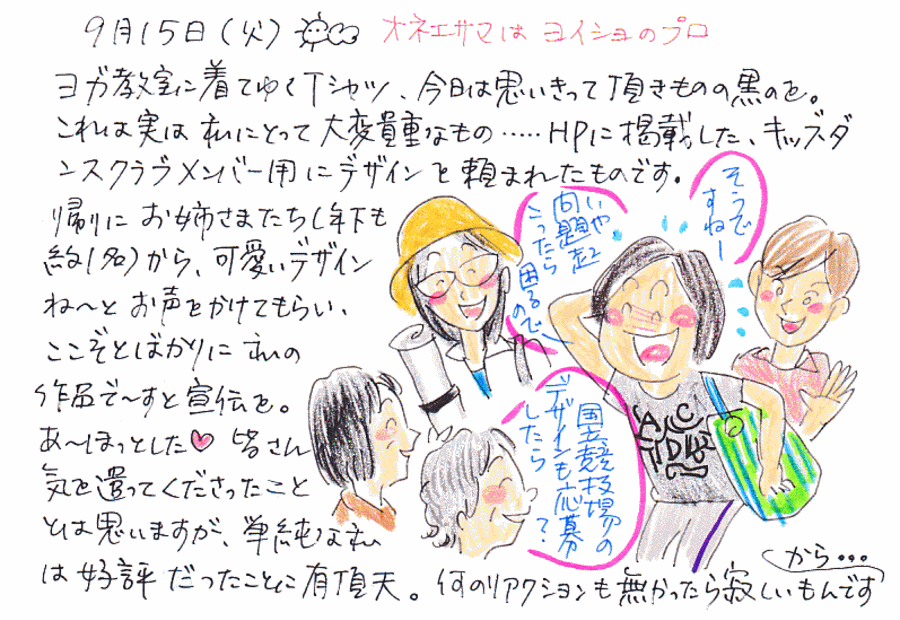 9月15日(火) オネエサマは ヨイショのプロ
ヨガ教室に着てゆくTシャツ、今日は思いきって頂きものの黒のを。
これは実は 私にとって 大変貴重なもの……HPに掲載した、キッズダ
ンスクラブメンバー用にデザインを頼まれたものです。
帰りに お姉さまたち(年下も
約1名)から、可愛いデザイン
ね〜と お声をかけてもらい、
ここぞとばかりに 私の
作品で〜すと宣伝を。
あ〜ほっとした♡ 皆さん
気を遣ってくださったこと
とは思いますが、単純な私
は 好評だったことに有頂天。何のリアクションも無かったら寂しいもんです
から…
そうで
すねー
いや、
問題起
こったら
困るので
国立競技場の
デザインも応募
したら?